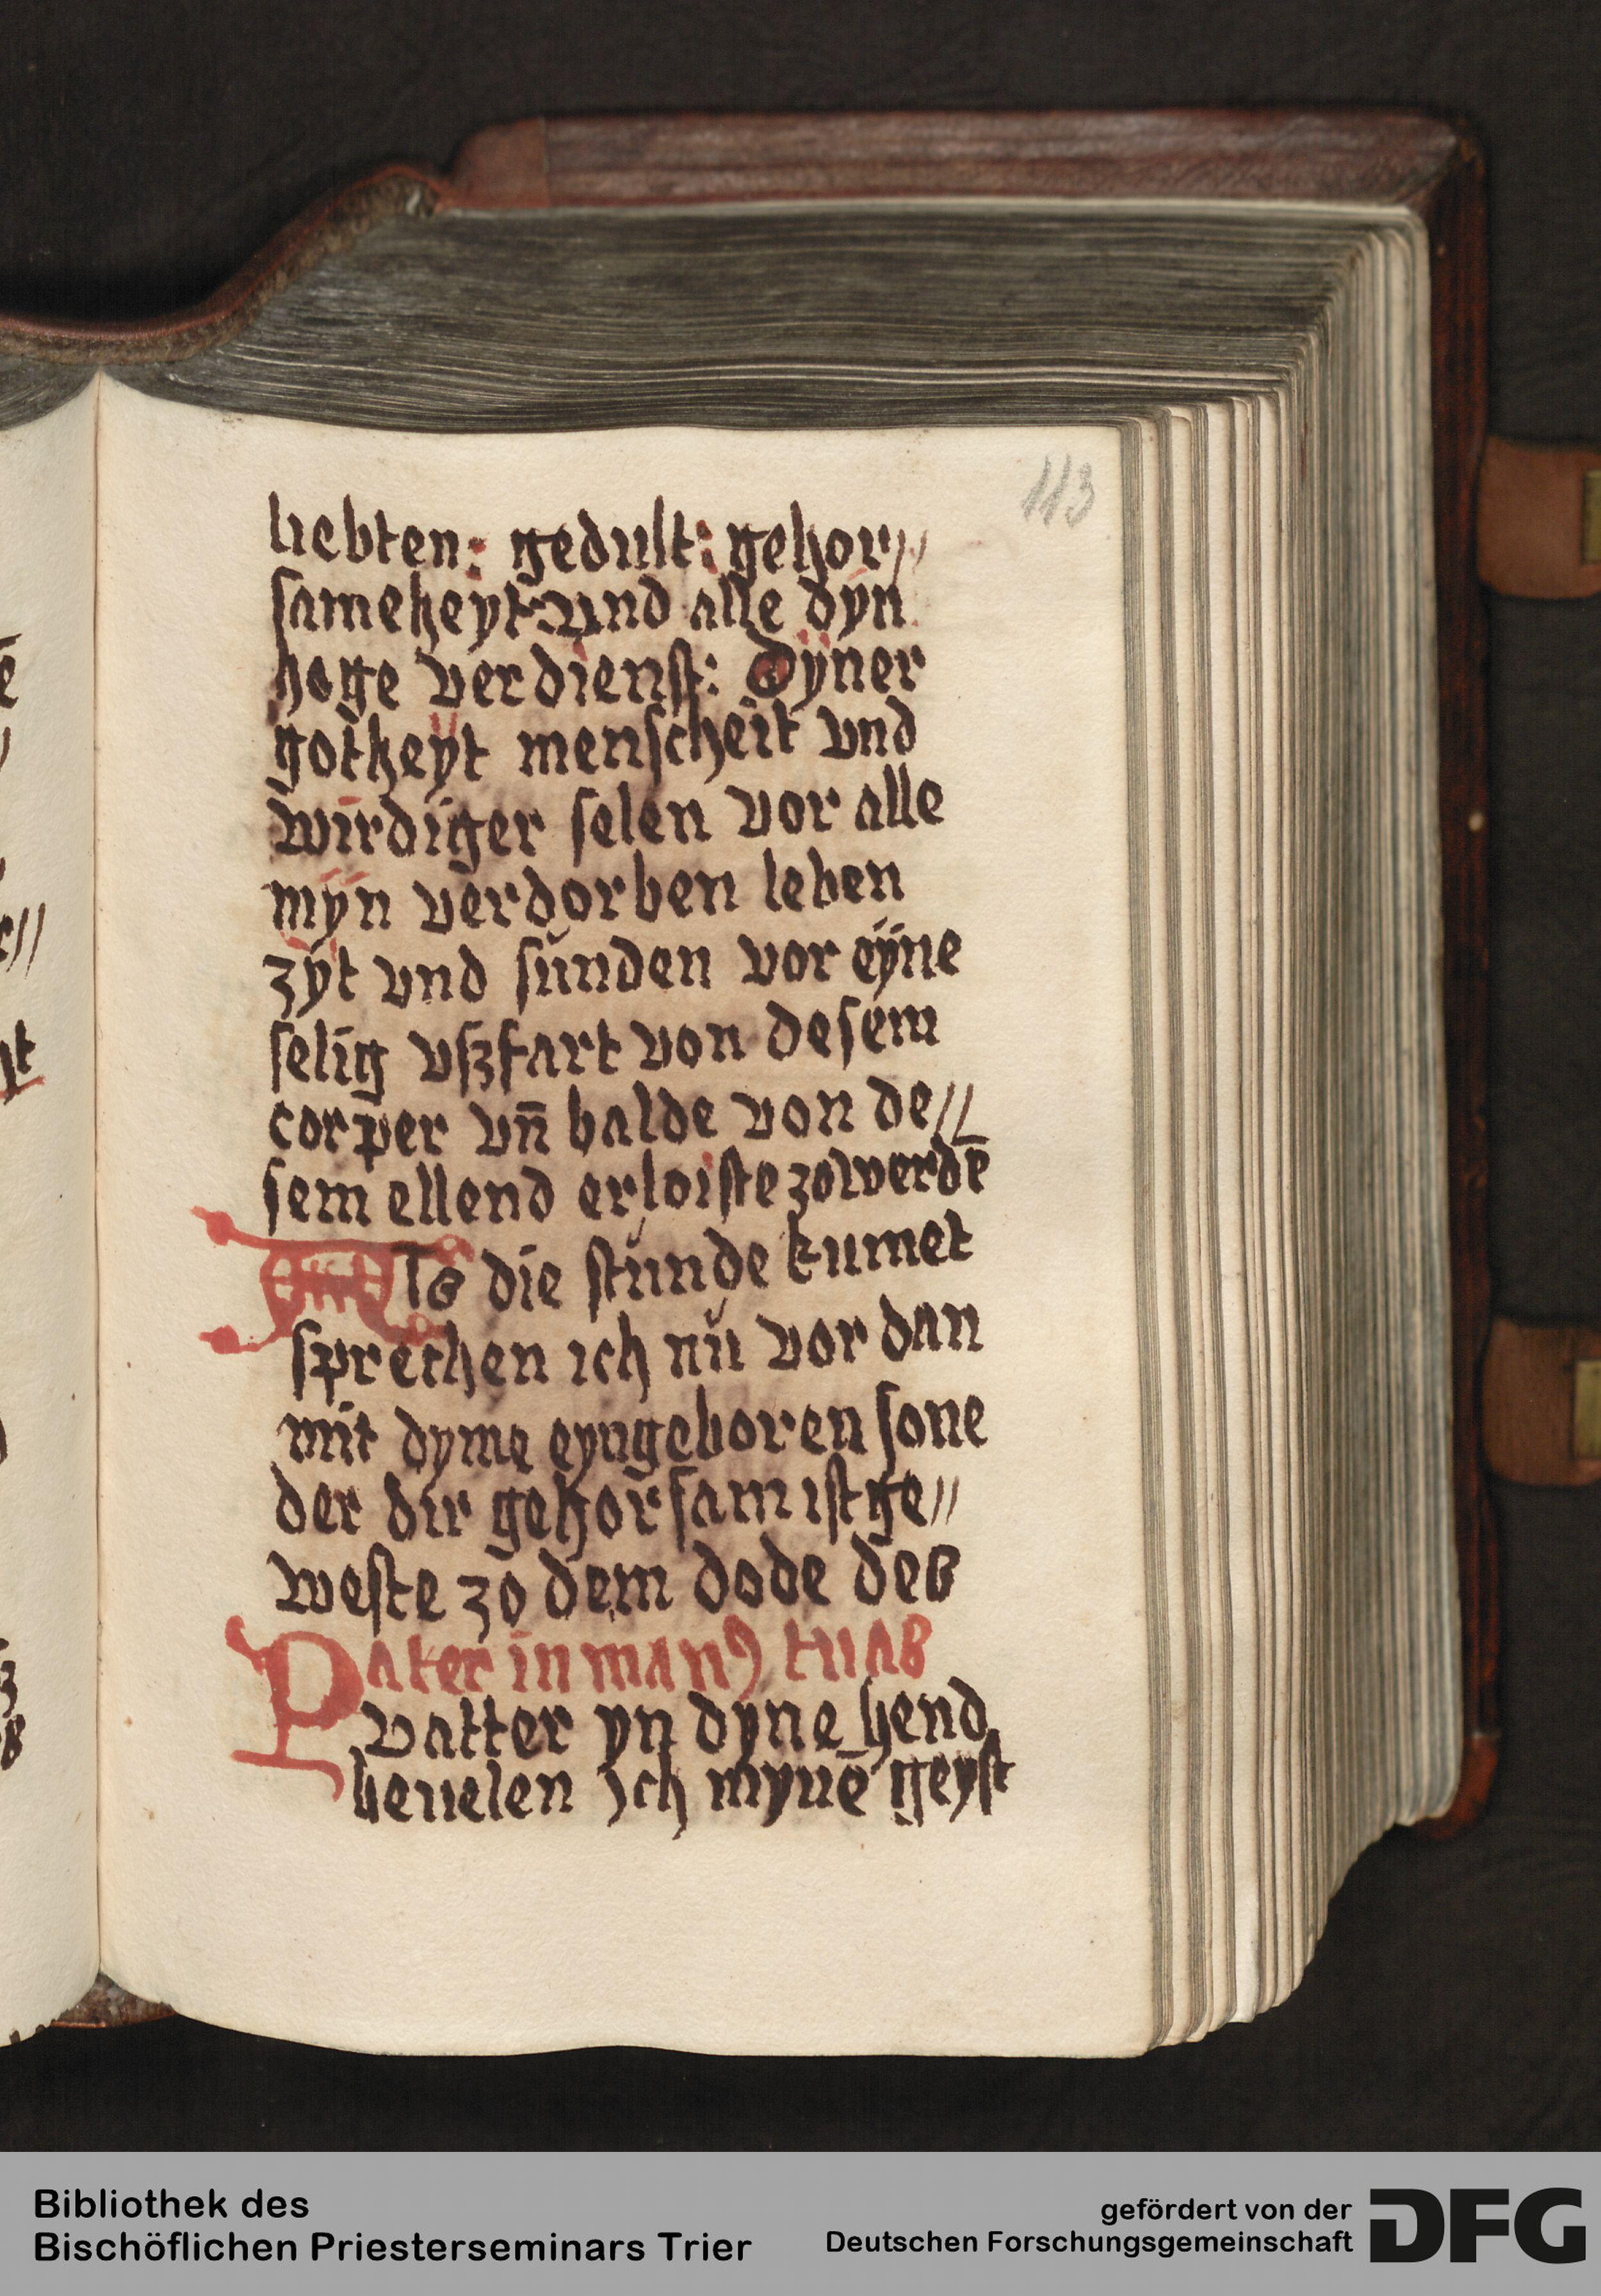 113
liebten: gedult: gehor//
sameheyt: und alle dyn
hoge verdienst: Dyner
gotheyt menscheit vnd
wirdiger selen vor alle
myn verdorben leben
zyt vnd sunden vor eyne
selig vszfart von desem
corper vn̄ balde von de//
sem ellend erloiste zo werdē
Als die stunde kumet
sprechen ich nu vor dan
mit dyme eyngeboren sone
der dir gehorsam ist ge//
weste zo dem dode des
Pater in manꝯ tuas
vatter yn dyne hend
beuelen Ich mynē geyst
Bibliothek des
Bischöflichen Priesterseminars Trier
gefördert von der
Deutschen Forschungsgemeinschaft
DFG